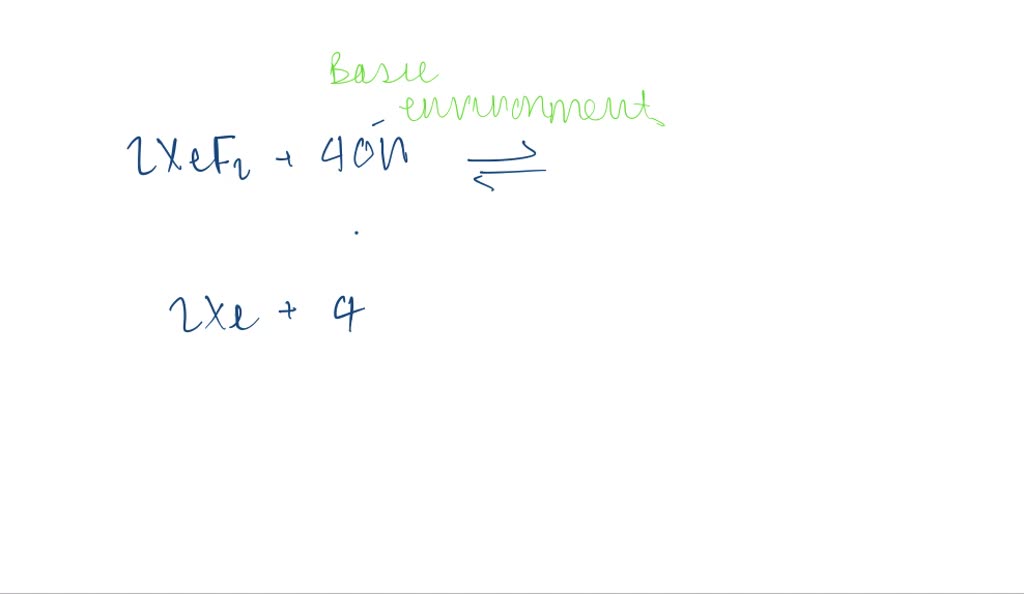 Basic
environment
2XeF₂ + 4OH⁻ ⇌
2Xe + 4